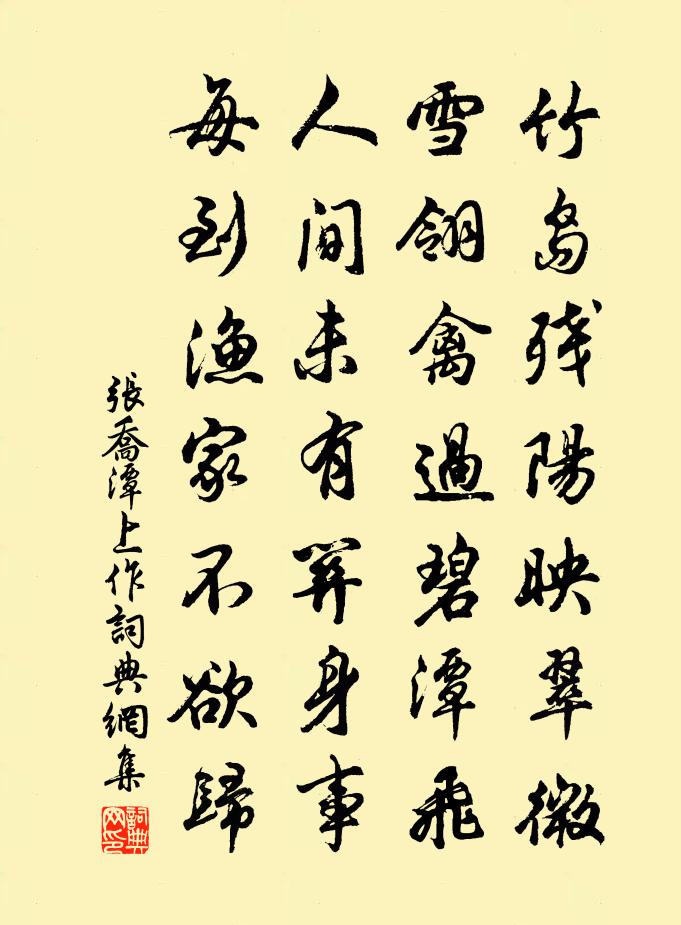 竹島殘陽映翠微
雪翎禽過碧潭飛
人間未有關身事
每到漁家不欲歸
張喬潭上作詞典網集
詞典网印